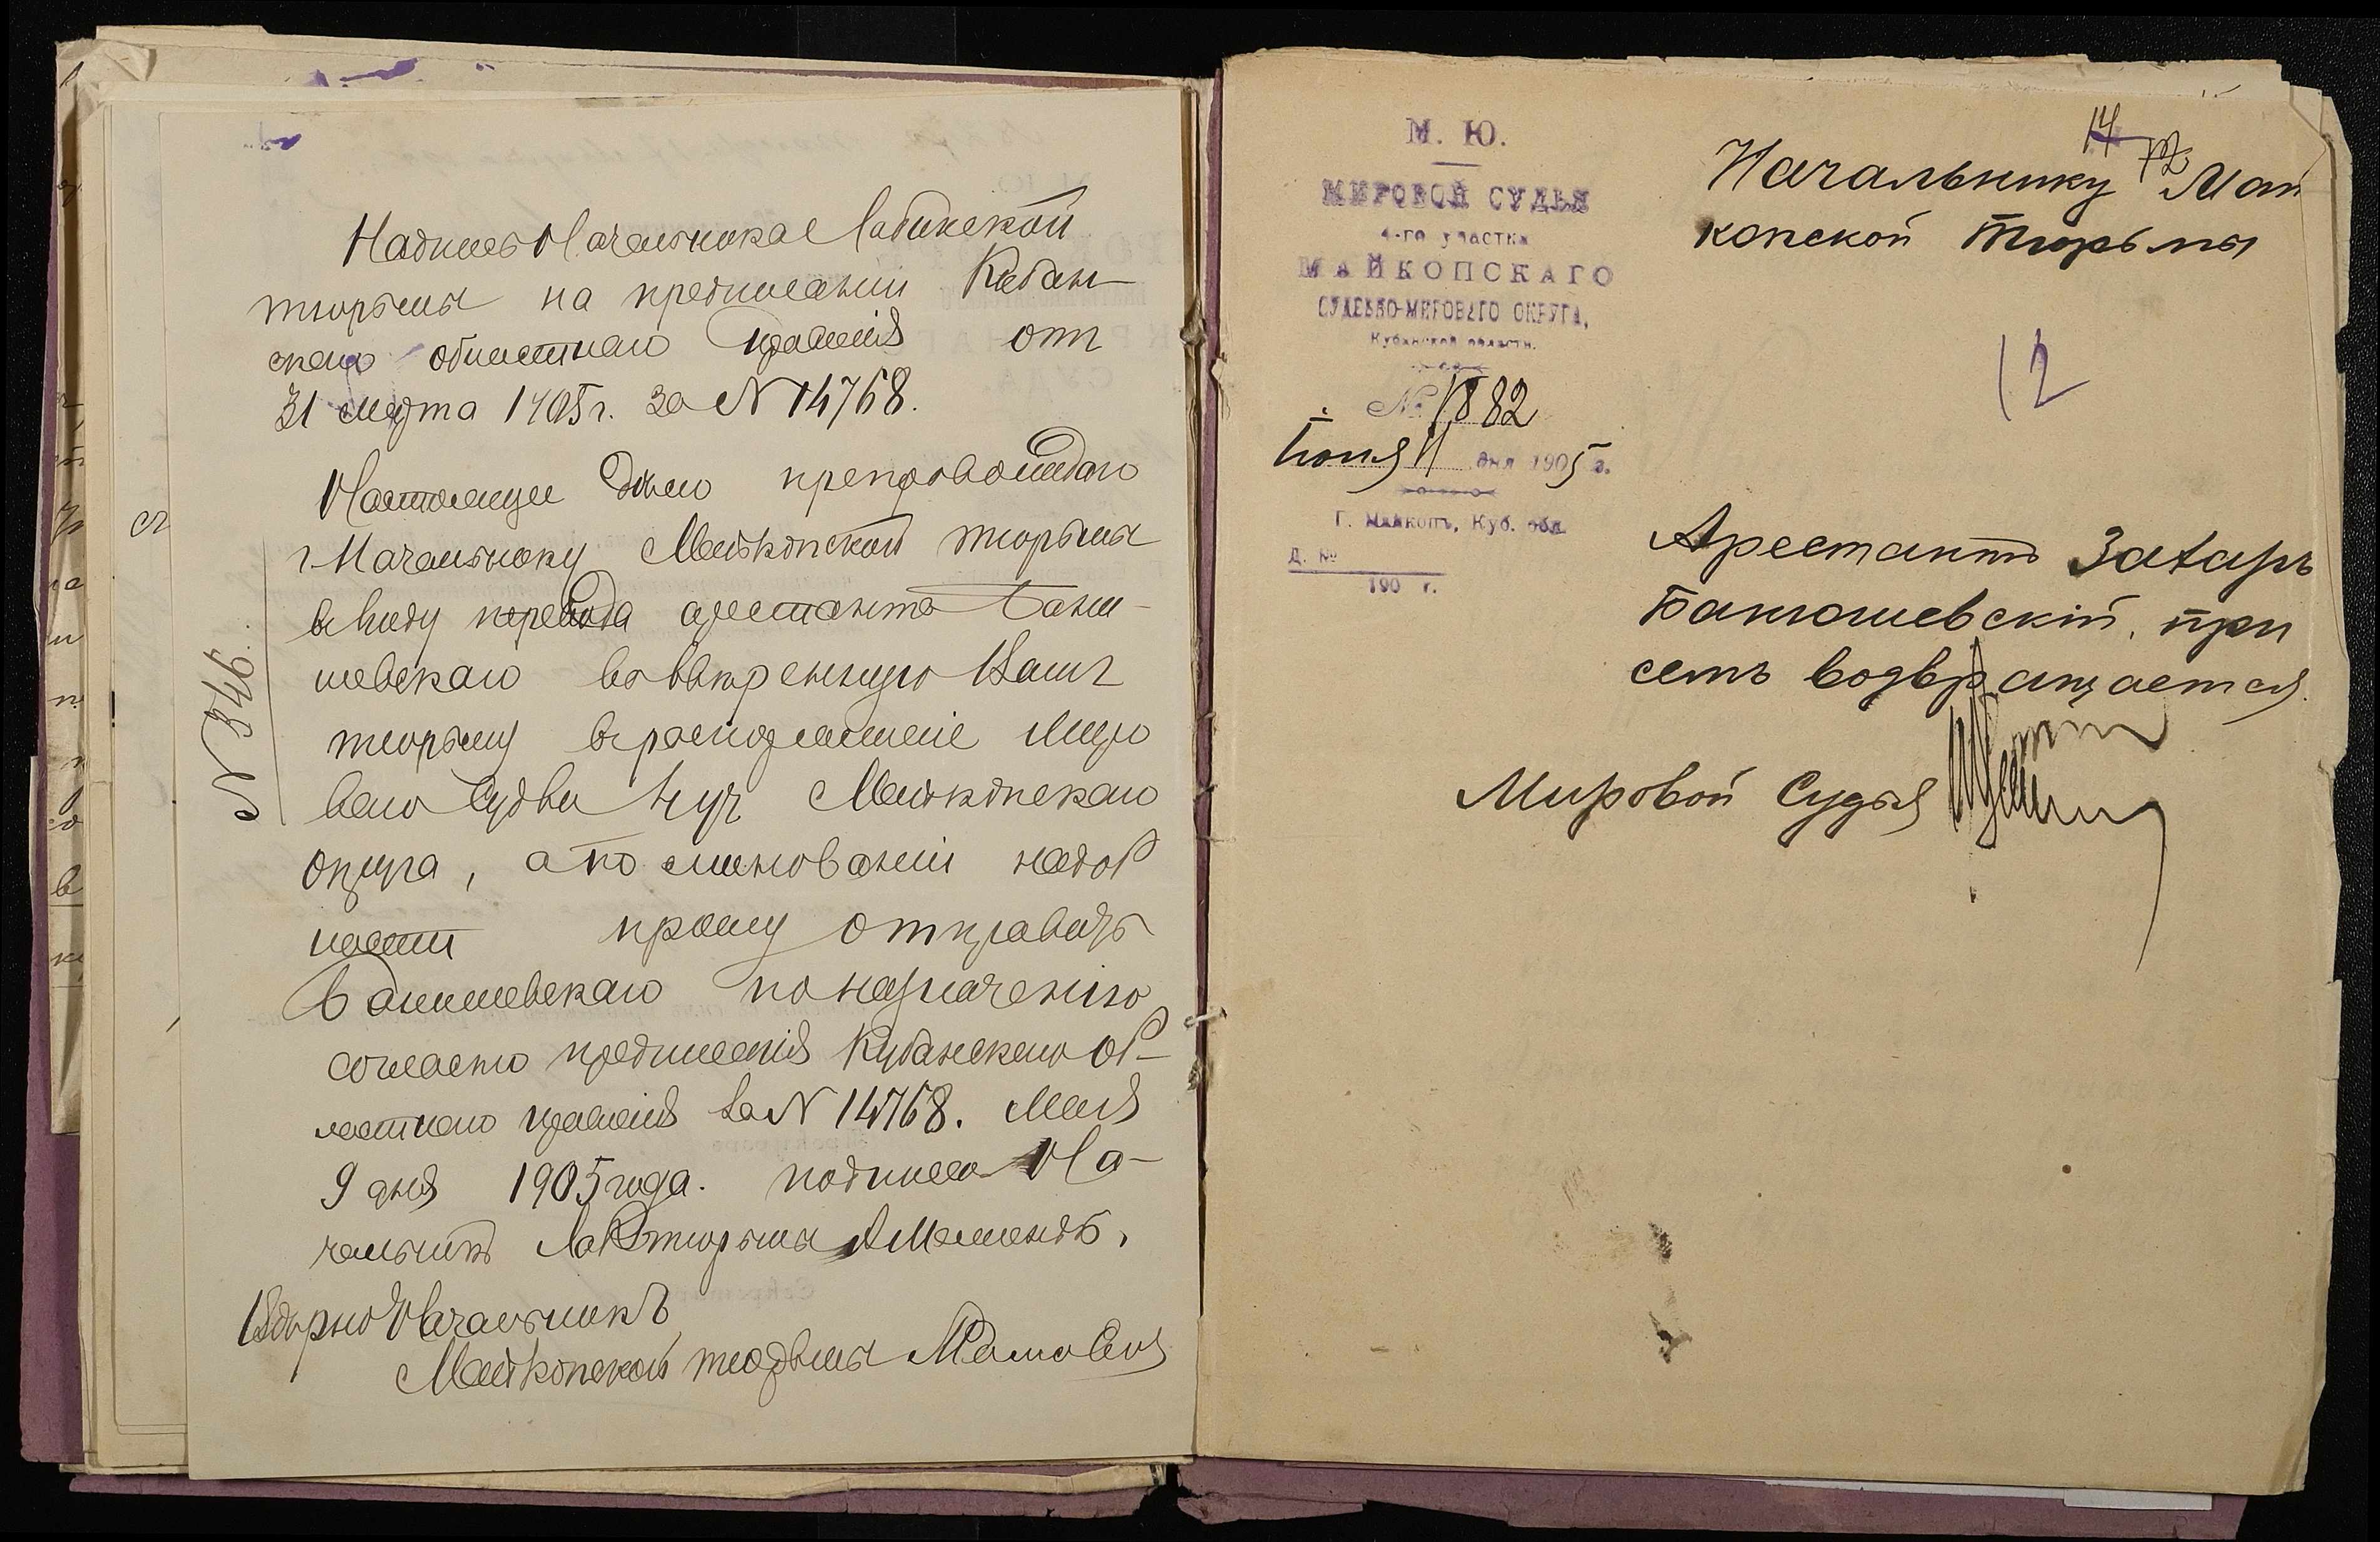 Надпись Начальника Лабинской
тюрьмы на предписании Кубан-
скаго областнаго правленія от
31 марта 1905 г. за N 14768.
Настоящее дѣло препровождаю
г Начальнику Майкопской тюрьмы
въ виду перевода арестанта Бани-
шевскаго во ввѣренную Вамъ
тюрьму въ распоряженіе Миро
ваго Судьи 4 уч Майкопскаго
округа, а по минованіи надоб
ности прошу отправить
Банишевскаго по назначенію
согласно предписанія Кубанскаго Об-
ластнаго правленія за N 14768. Мая
9 дня 1905 года. подписалъ На-
чальникъ Лаб тюрьмы
Вѣрно Начальникъ
Майкопской тюрьмы
N 346.
сл
М. Ю.
МИРОВОЙ СУДЬЯ
4-го участка
МАЙКОПСКАГО
СУДЕБНО-МИРОВАГО ОКРУГА,
Кубанской области.
№ 1882
Іюня 11 дня 1905 г.
Г. Майкопъ, Куб. обл.
Д. №
190 г.
14
12
Начальнику Май
копской тюрьмы
12
Арестантъ Захаръ
Банюшевскій, при
семъ возвращается.
Мировой Судья